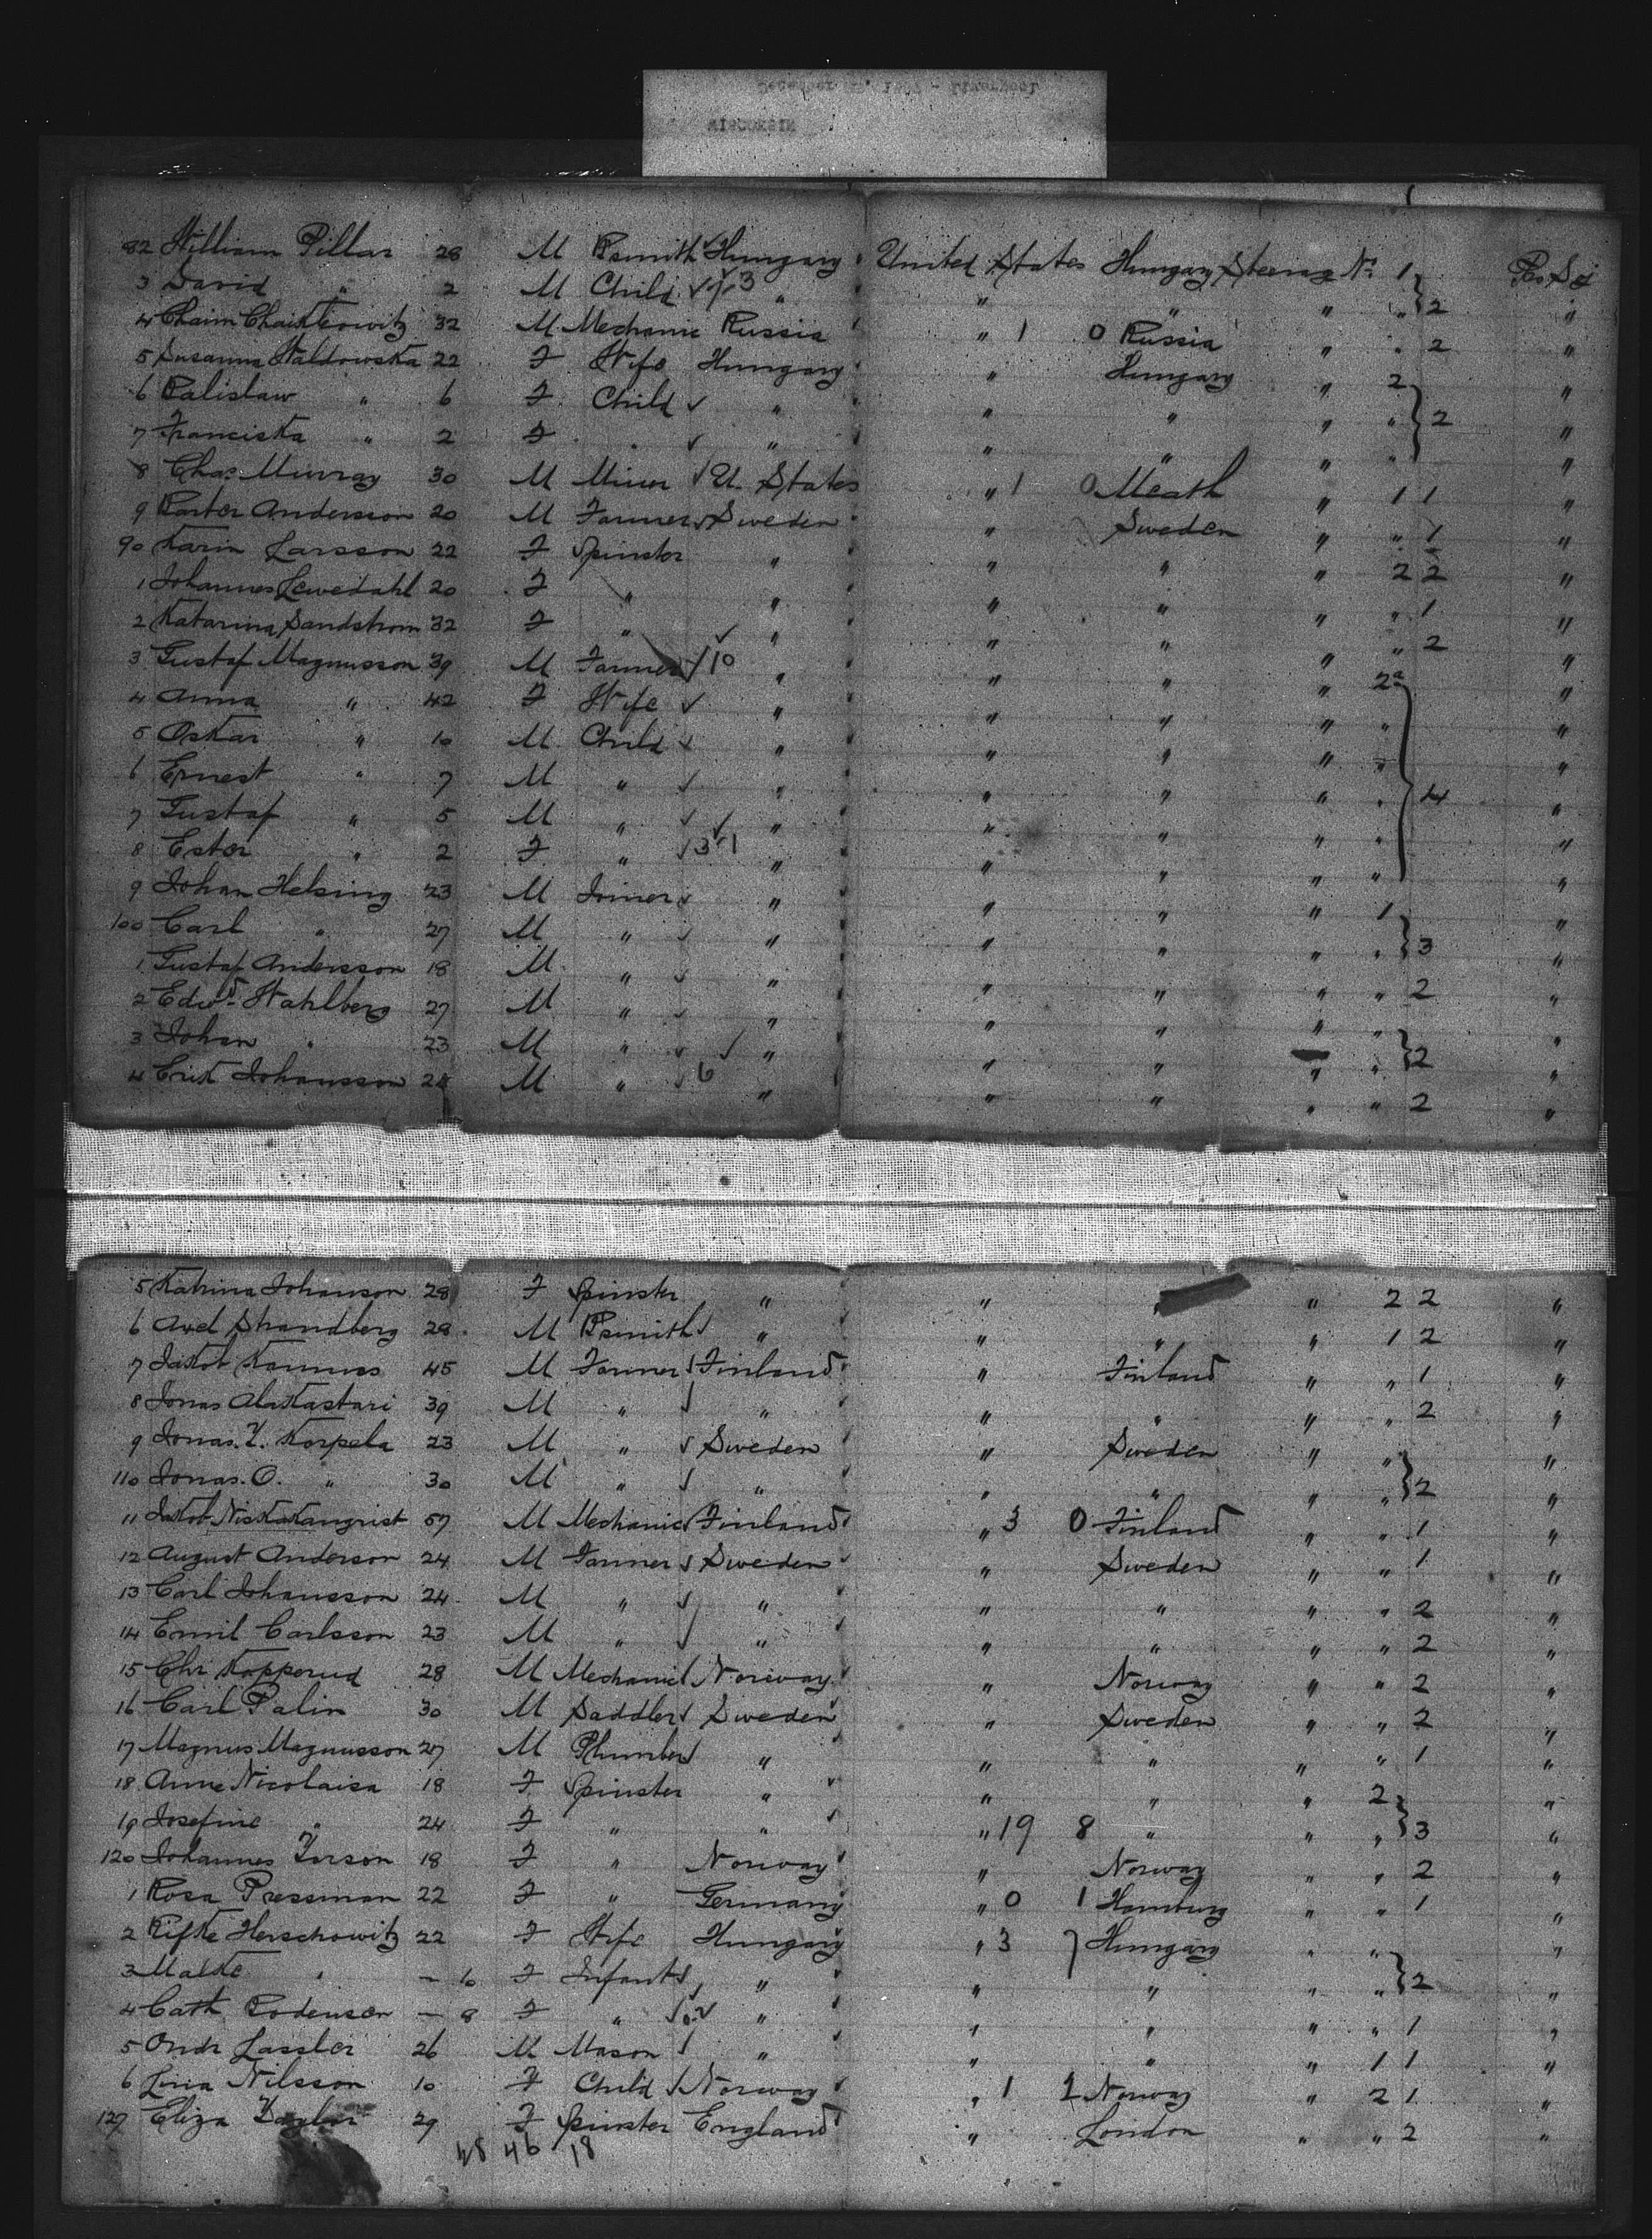 WISCONSIN
82 William Pillar 28 M Bsmith Hungary United States Hungary Steerage No. 1
3 David " 2 M Child 3 " " " " " 2 "
4 Chaim Chaikleowitz 32 M Mechanic Russia " 1 0 Russia " " 2 "
5 Susanna Waldowska 22 F Wife Hungary " Hungary " 2 "
6 Palislaw " 6 F Child " " " " " 2 "
7 Franciska " 2 F " " " " " " "
8 Chas. Murray 30 M Miner U. States " 1 0 Meath " 1 1 "
9 Andersson 20 M Farmer Sweden " Sweden " " 1 "
90 Karin Larsson 22 F Spinster " " " " 2 2 "
1 Johannes Lewedahl 20 F " " " " " " 1 "
2 Katarina Sandstrom 32 F " " " " " " 2 "
3 Gustaf Magnusson 39 M Farmer 10 " " " " 2 "
4 Anna " 42 F Wife " " " " " "
5 Oskar " 10 M Child " " " " " "
6 Ernest " 7 M " " " " " " 4 "
7 Gustaf " 5 M " " " " " " "
8 Ester " 2 F " 3 1 " " " " " "
9 Johan Helsing 23 M Joiner " " " " 1 "
100 Carl " 27 M " " " " " " 3 "
1 Gustaf Andersson 18 M " " " " " " 2 "
2 Edwd. Stahlberg 27 M " " " " " " "
3 Johan " 23 M " " " " " " 2 "
4 Erik Johansson 24 M " 6 " " " " " 2 "
5 Katrina Johanson 28 F Spinster " " " " 2 2 "
6 Axel Strandberg 28 M Bsmith " " " " 1 2 "
7 Jakob Kannus 45 M Farmer Finland " Finland " " 1 "
8 Jonas Alakastari 39 M " " " " " " 2 "
9 Jonas. Korpela 23 M " Sweden " Sweden " " "
110 Jonas. O. " 30 M " " " " " " 2 "
11 Jakob Niskakangrist 57 M Mechanic Finland " 3 0 Finland " " 1 "
12 August Anderson 24 M Farmer Sweden " Sweden " " 1 "
13 Carl Johansson 24 M " " " " " " 2 "
14 Emil Carlsson 23 M " " " " " " 2 "
15 Chr Kopperud 28 M Mechanic Norway " Norway " " 2 "
16 Carl Palin 30 M Saddler Sweden " Sweden " " 2 "
17 Magnus Magnusson 27 M Plumber " " " " " 1 "
18 Anne Nicolaisa 18 F Spinster " " " " 2 "
19 Josefine " 24 F " " " 19 8 " " " 3 "
120 Johannes 18 F " Norway " Norway " " 2 "
1 Rosa Pressman 22 F " Germany " 0 1 Hamburg " " 1 "
2 Rifke Herschowitz 22 F Wife Hungary " 3 Hungary " " "
3 Malke " – 10 F Infant " " " " " 2 "
4 Cath Rodenson – 8 F " " " " " " 1 "
5 Ondr Lassler 26 M Mason " " " " 1 1 "
6 Lina Nilsson 10 F Child Norway " 1 1 Norway " 2 1 "
127 Eliza Taylor 29 F Spinster England " London " " 2 "
48 46 18